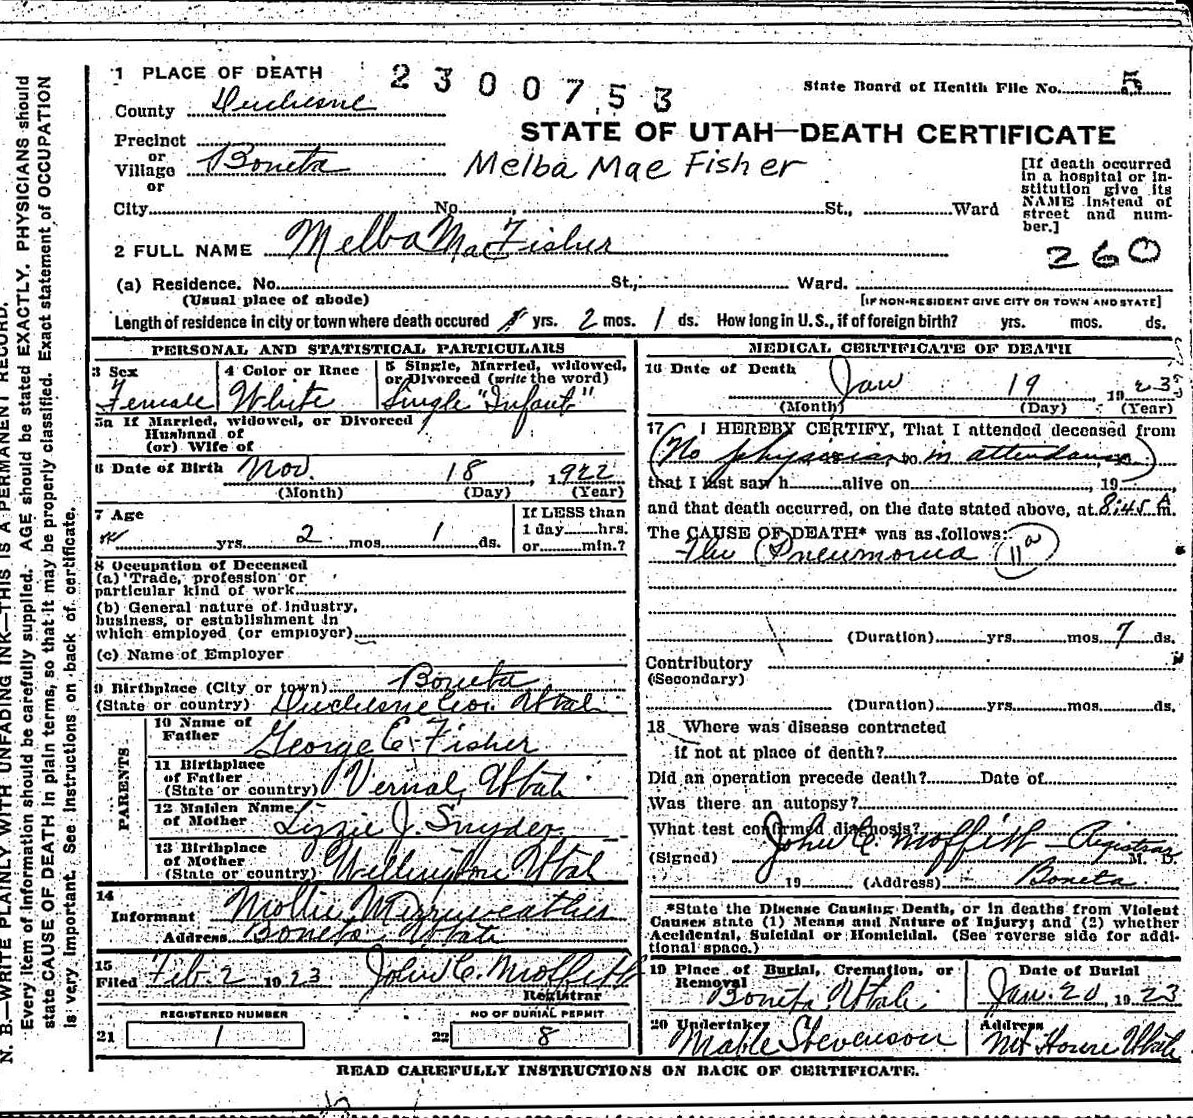 N. B.—WRITE PLAINLY WITH UNFADING INK—THIS IS A PERMANENT RECORD.
Every item of information should be carefully supplied. AGE should be stated EXACTLY. PHYSICIANS should
state CAUSE OF DEATH in plain terms, so that it may be properly classified. Exact statement of OCCUPATION
is very important. See instructions on back of certificate.
1 PLACE OF DEATH
2300753
State Board of Health File No. 5
County Duchesne
STATE OF UTAH—DEATH CERTIFICATE
Precinct
or
Village Boneta
or
Melba Mae Fisher
[If death occurred
in a hospital or in-
stitution give its
NAME instead of
street and num-
ber.]
City No. St., Ward
2 FULL NAME Melba Mae Fisher
260
(a) Residence. No. St., Ward.
(Usual place of abode)
[IF NON-RESIDENT GIVE CITY OR TOWN AND STATE]
Length of residence in city or town where death occured yrs. 2 mos. 1 ds. How long in U. S., if of foreign birth? yrs. mos. ds.
PERSONAL AND STATISTICAL PARTICULARS
3 Sex
Female
4 Color or Race
White
5 Single, Married, widowed,
or Divorced (write the word)
Single "Infant"
5a If Married, widowed, or Divorced
Husband of
(or) Wife of
6 Date of Birth Nov. 18, 1922
(Month) (Day) (Year)
7 Age
yrs. 2 mos. 1 ds.
If LESS than
1 day hrs.
or min.?
8 Occupation of Deceased
(a) Trade, profession or
particular kind of work
(b) General nature of industry,
business, or establishment in
which employed (or employer)
(c) Name of Employer
9 Birthplace (City or town) Boneta
(State or country) Duchesne Co. Utah
PARENTS
10 Name of
Father George E. Fisher
11 Birthplace
of Father
(State or country) Vernal, Utah
12 Maiden Name
of Mother Lizzie J. Snyder
13 Birthplace
of Mother
(State or country) Wellington Utah
14
Informant Mollie Merriweather
Address Boneta Utah
15
Filed Feb. 2 1923 John C. Moffitt
Registrar
REGISTERED NUMBER
21 1
NO OF BURIAL PERMIT
22 8
MEDICAL CERTIFICATE OF DEATH
16 Date of Death Jan 19, 1923
(Month) (Day) (Year)
17 I HEREBY CERTIFY, That I attended deceased from
(No physician in attendance)
that I last saw h alive on , 19 ,
and that death occurred, on the date stated above, at 8:45 A m.
The CAUSE OF DEATH* was as follows:
Flu (Pneumonia 11a
(Duration) yrs. mos. 7 ds.
Contributory
(Secondary)
(Duration) yrs. mos. ds.
18 Where was disease contracted
if not at place of death?
Did an operation precede death? Date of
Was there an autopsy?
What test confirmed diagnosis?
(Signed) John C. Moffitt — Registrar M. D.
19 (Address) Boneta
*State the Disease Causing Death, or in deaths from Violent
Causes state (1) Means and Nature of Injury; and (2) whether
Accidental, Suicidal or Homicidal. (See reverse side for addi-
tional space.)
19 Place of Burial, Cremation, or
Removal Boneta Utah
Date of Burial
Jan. 20, 1923
20 Undertaker
Mable Stevenson
Address
Mt Home Utah
READ CAREFULLY INSTRUCTIONS ON BACK OF CERTIFICATE.